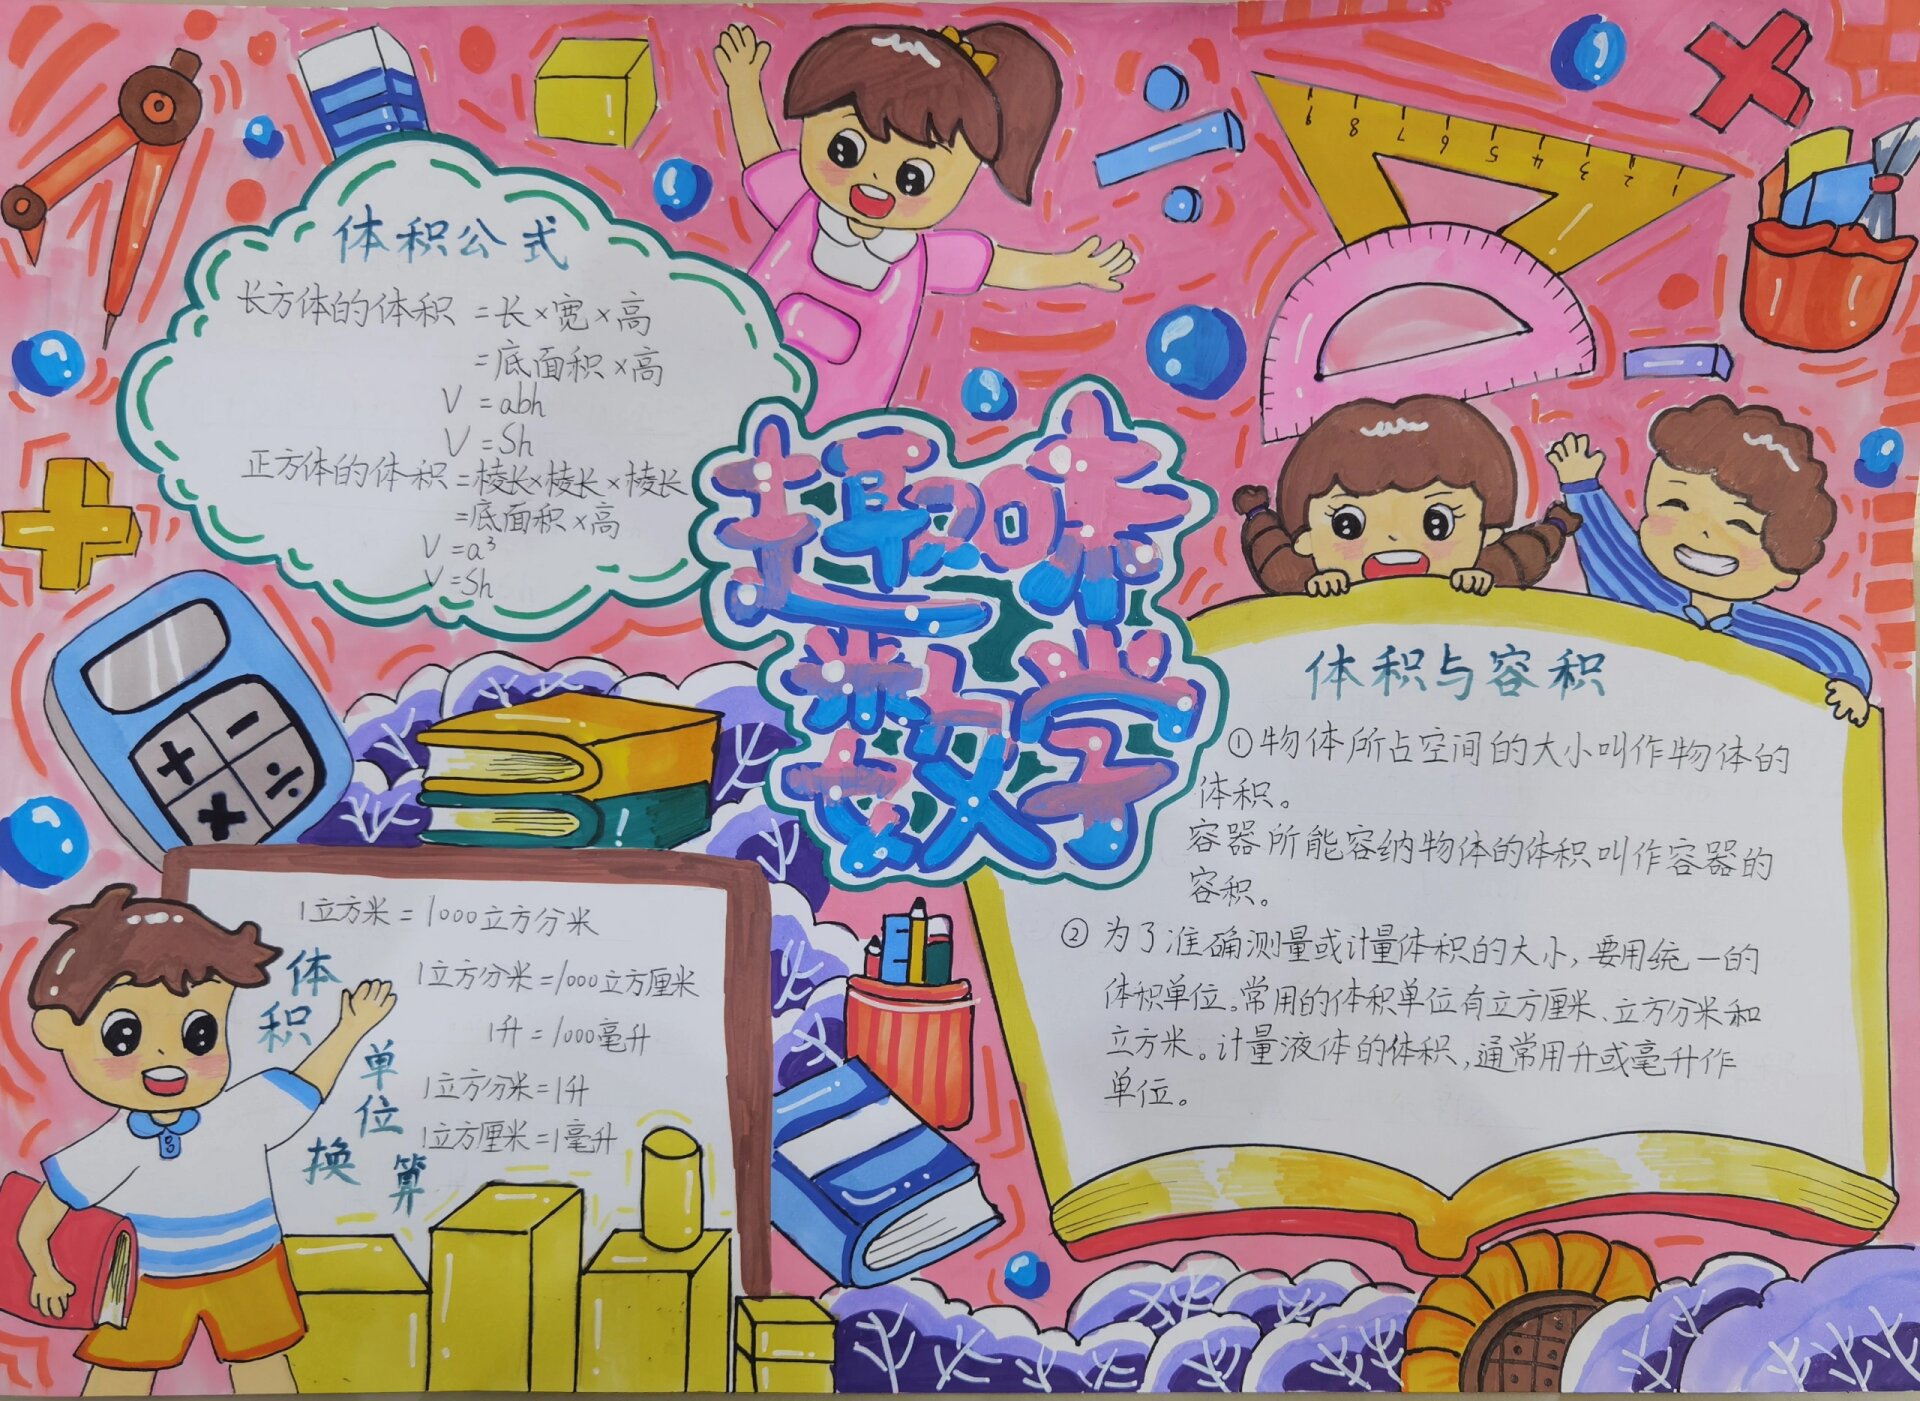 体积公式
长方体的体积 =长×宽×高
=底面积×高
V =abh
V=Sh
正方体的体积=棱长×棱长×棱长
=底面积×高
V=a³
V=Sh
趣味
数学
9 8 7 6 5 4 3 2 1
体积与容积
①物体所占空间的大小叫作物体的
体积。
容器所能容纳物体的体积叫作容器的
容积。
②为了准确测量或计量体积的大小,要用统一的
体积单位。常用的体积单位有立方厘米、立方分米和
立方米。计量液体的体积,通常用升或毫升作
单位。
体积单位换算
1立方米=1000立方分米
1立方分米=1000立方厘米
1升=1000毫升
1立方分米=1升
1立方厘米=1毫升
+ -
× ÷